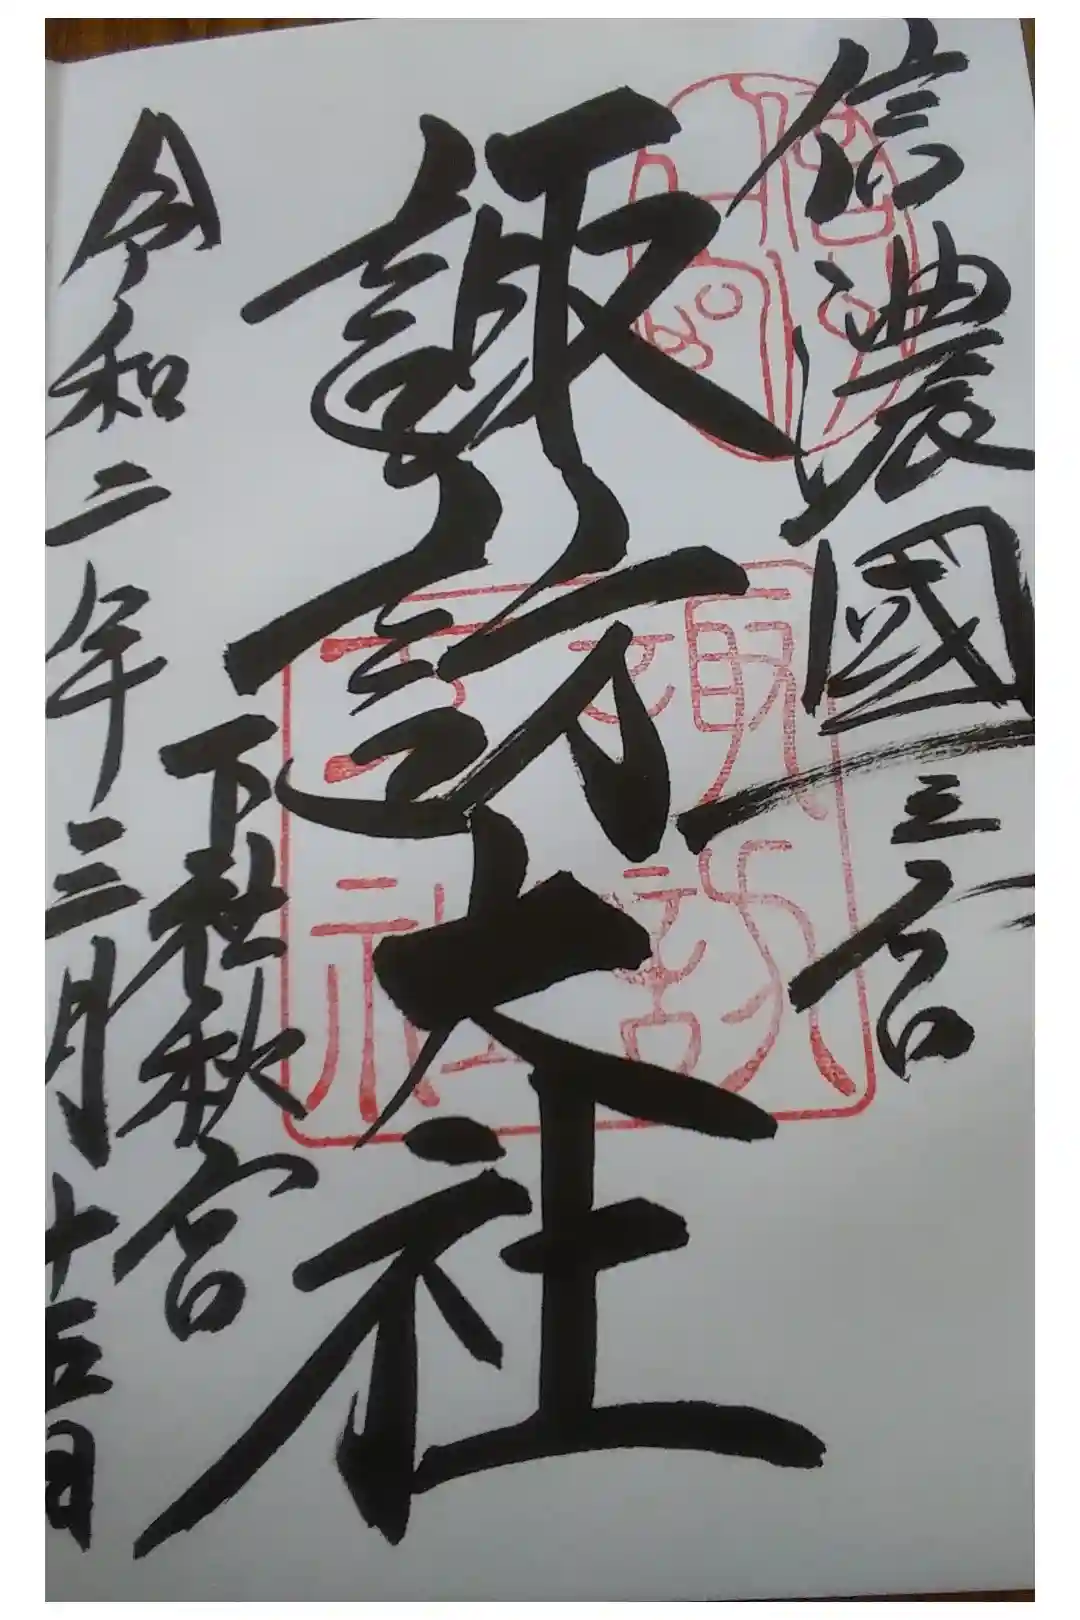 信濃國一之宮
諏訪大社
下社秋宮
令和二年三月十五日